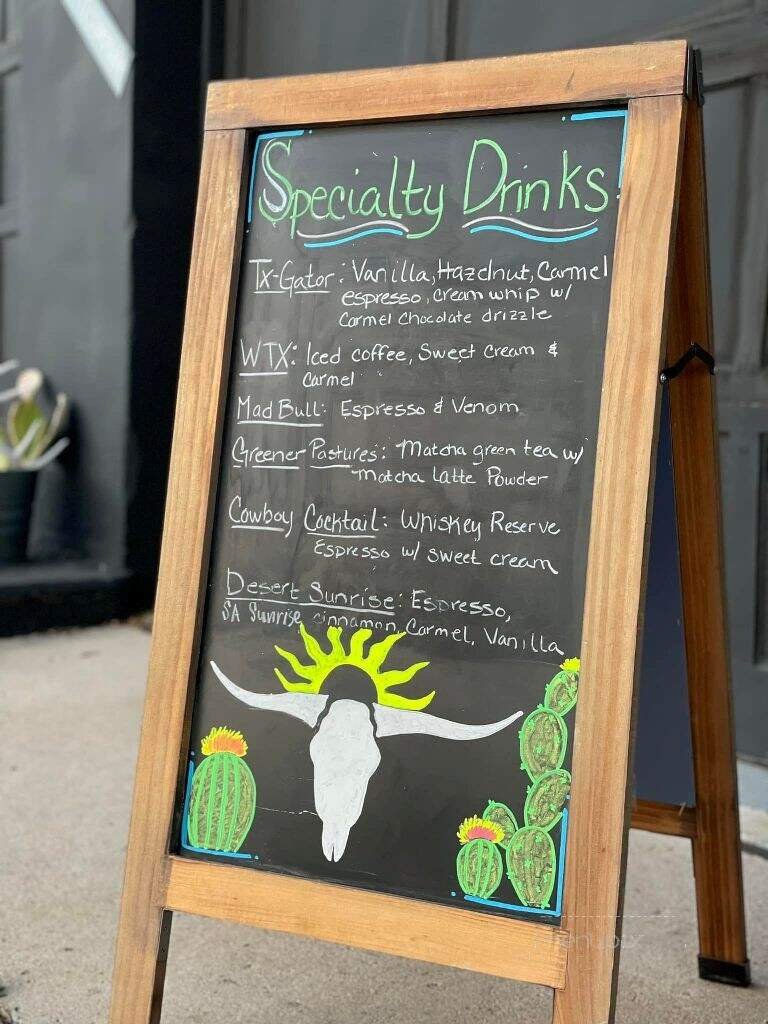 Specialty Drinks
Tx-Gator: Vanilla, Hazelnut, Carmel
espresso, cream whip w/
Carmel Chocolate drizzle
WTX: Iced coffee, Sweet Cream &
Carmel
Mad Bull: Espresso & Venom
Greener Pastures: Matcha green tea w/
Matcha Latte Powder
Cowboy Cocktail: Whiskey Reserve
Espresso w/ sweet cream
Desert Sunrise: Espresso,
SA Sunrise cinnamon, Carmel, Vanilla